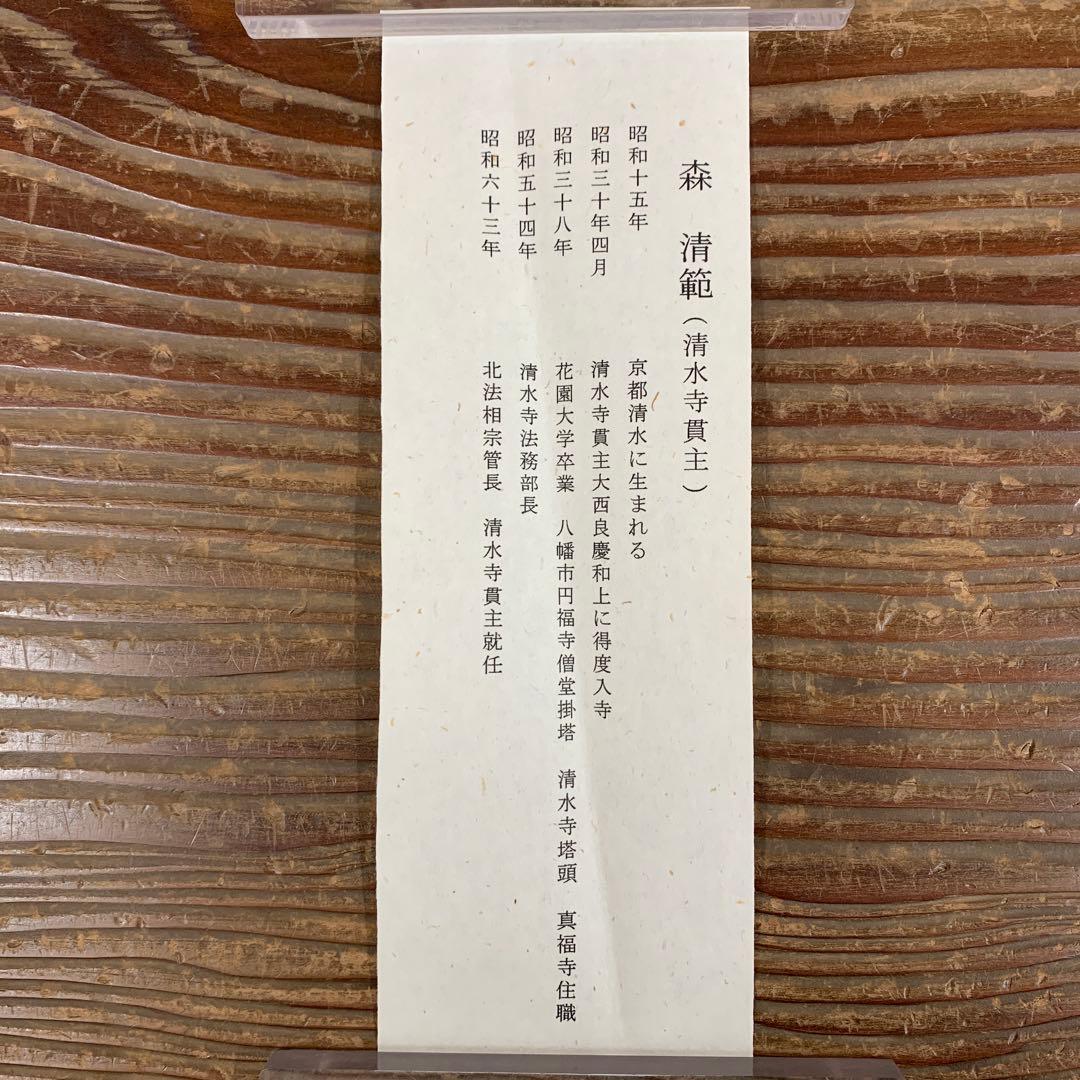 森　清範（清水寺貫主）
昭和十五年　京都清水に生まれる
昭和三十年四月　清水寺貫主大西良慶和上に得度入寺
昭和三十八年　花園大学卒業　八幡市円福寺僧堂掛塔　清水寺塔頭　真福寺住職
昭和五十四年　清水寺法務部長
昭和六十三年　北法相宗管長　清水寺貫主就任